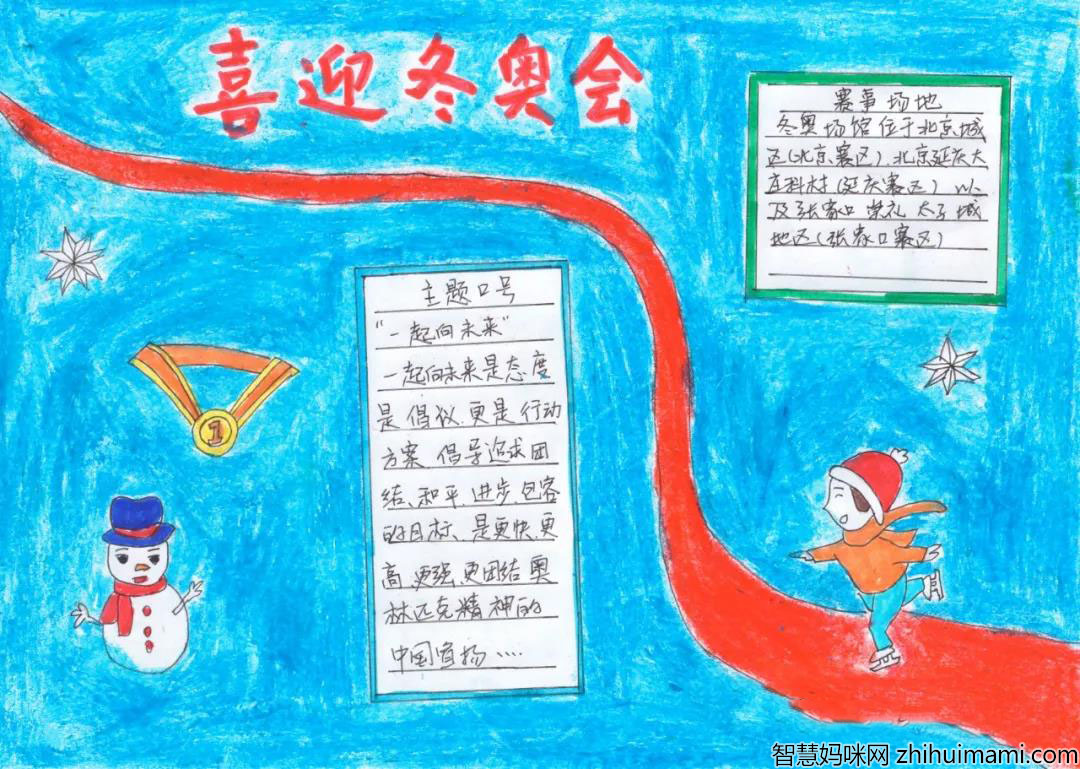 喜迎冬奥会
赛事场地
冬奥场馆位于北京城
区(北京赛区)、北京延庆大
庄科村(延庆赛区) 以
及张家口崇礼太子城
地区(张家口赛区)
主题口号
"一起向未来"
一起向未来是态度
是倡议.更是行动
方案 倡导追求团
结、和平、进步包容
的目标、是更快.更
高.更强.更团结奥
林匹克精神的
中国宣扬....
1
智慧妈咪网 zhihuimami.com